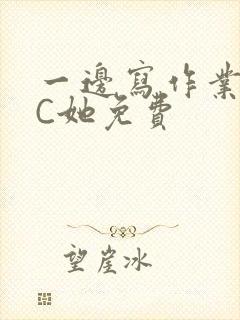 一邊寫作業
C她免費
望崖冰